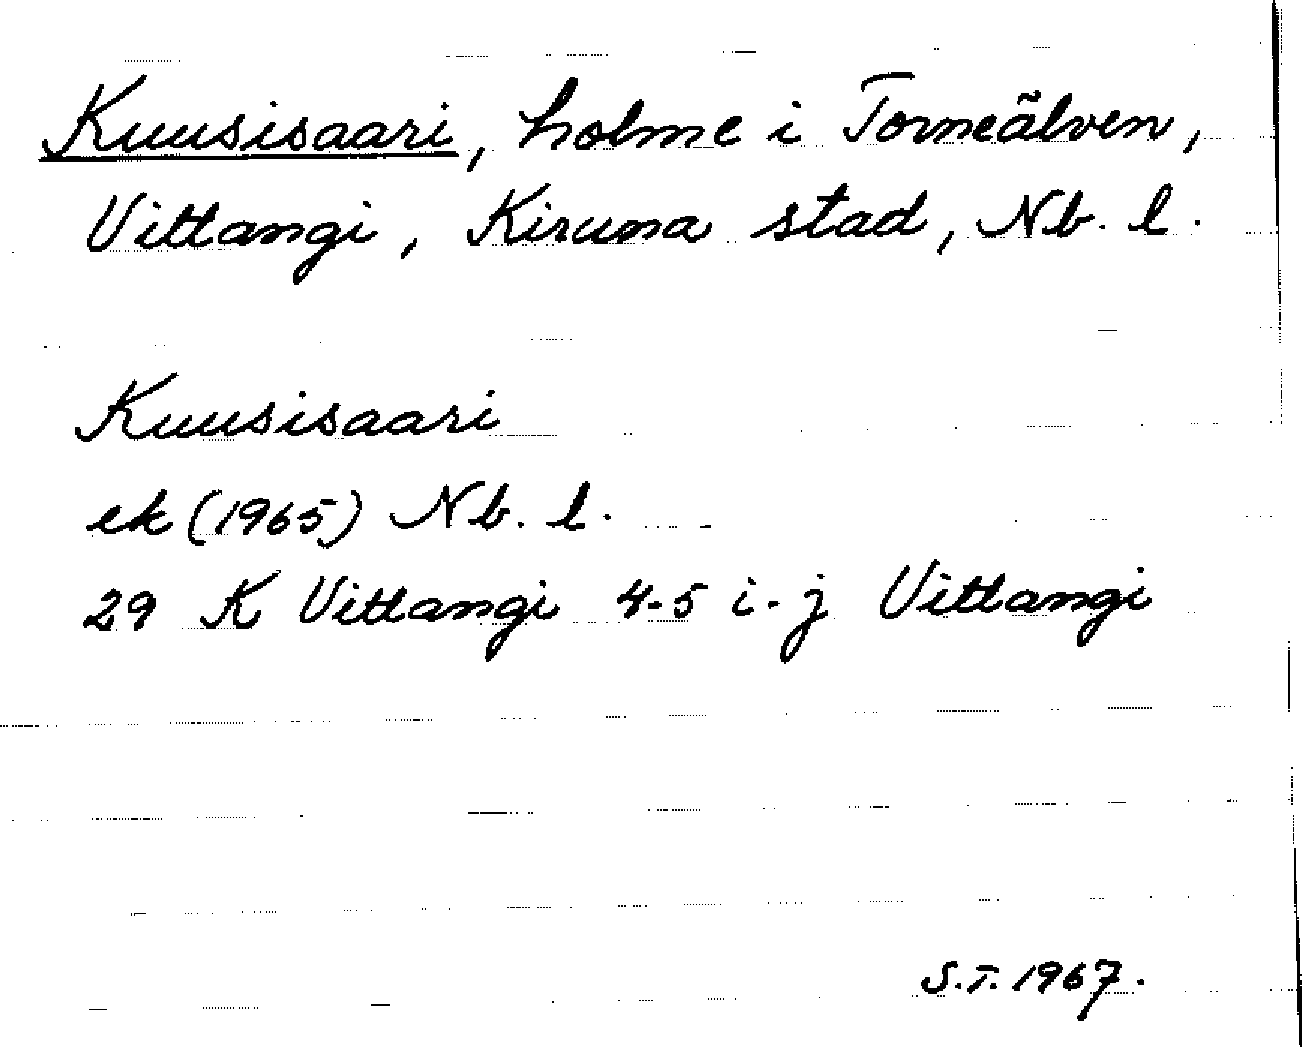 Kuusisaari, holme i Torneälven,
Vittangi, Kiruna stad, Nb. l.
Kuusisaari
ek (1965) Nb. l.
29 K Vittangi 4-5 i-j Vittangi
S.T. 1967.